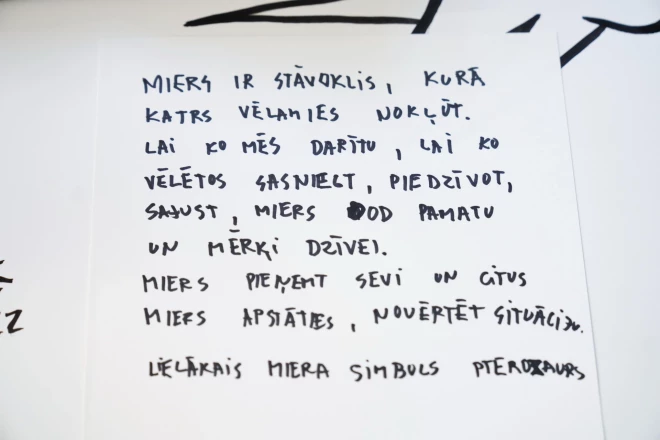 MIERS IR STĀVOKLIS, KURĀ
KATRS VĒLAMIES NOKĻŪT.
LAI KO MĒS DARĪTU, LAI KO
VĒLĒTOS SASNIEGT, PIEDZĪVOT,
SAJUST, MIERS DOD PAMATU
UN MĒRĶI DZĪVEI.
MIERS PIEŅEMT SEVI UN CITUS
MIERS APSTĀTIES, NOVĒRTĒT SITUĀCIJU.
LIELĀKAIS MIERA SIMBOLS PTEROZAURS